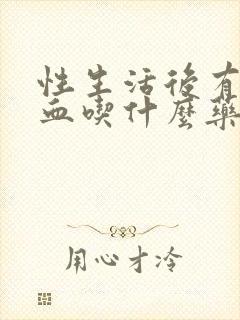 性生活後有
血喫什麼藥
用心才冷